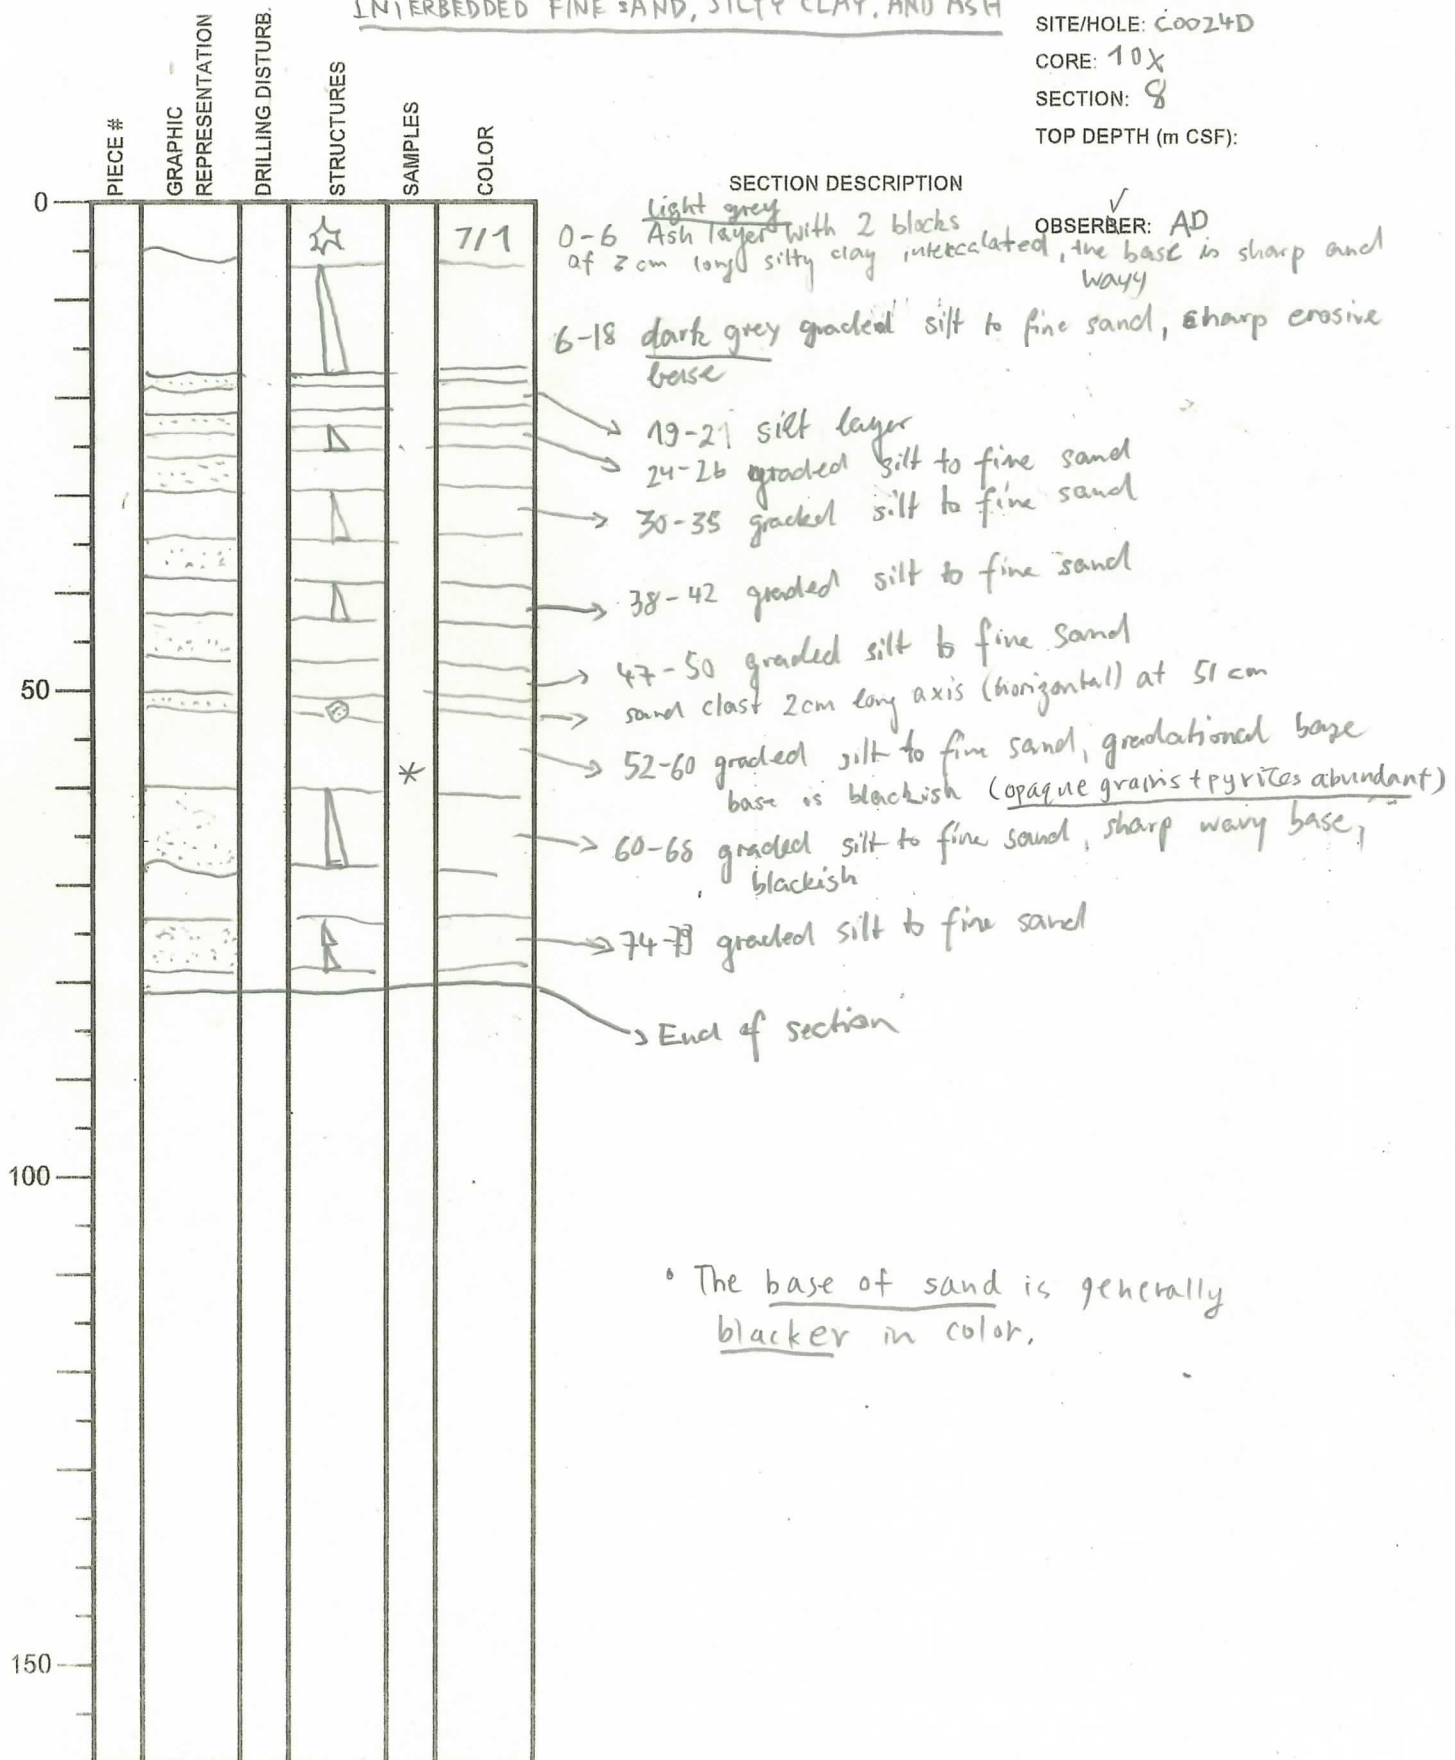 INTERBEDDED FINE SAND, SILTY CLAY, AND ASH
SITE/HOLE: C0024D
CORE: 10X
SECTION: 8
TOP DEPTH (m CSF):
PIECE #
GRAPHIC REPRESENTATION
DRILLING DISTURB.
STRUCTURES
SAMPLES
COLOR
SECTION DESCRIPTION
OBSERBER: AD
V
0
7/1
light grey
0-6 Ash layer with 2 blocks
of cm long silty clay intercalated, the base is sharp and
wavy
6-18 dark grey graded silt to fine sand, sharp erosive
base
19-21 silt layer
24-26 graded silt to fine sand
30-35 graded silt to fine sand
38-42 graded silt to fine sand
47-50 graded silt to fine sand
50
sand clast 2cm long axis (horizontal) at 51 cm
52-60 graded silt to fine sand, gradational base
*
base is blackish (opaque grains + pyrites abundant)
60-68 graded silt to fine sand, sharp wavy base,
blackish
74-79 graded silt to fine sand
End of section
100
• The base of sand is generally
blacker in color.
150